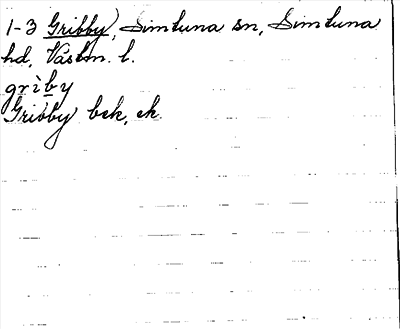 1-3 Gribby, Simtuna sn, Simtuna
hd, Västm. l.
grìby
Gribby bek, ek.